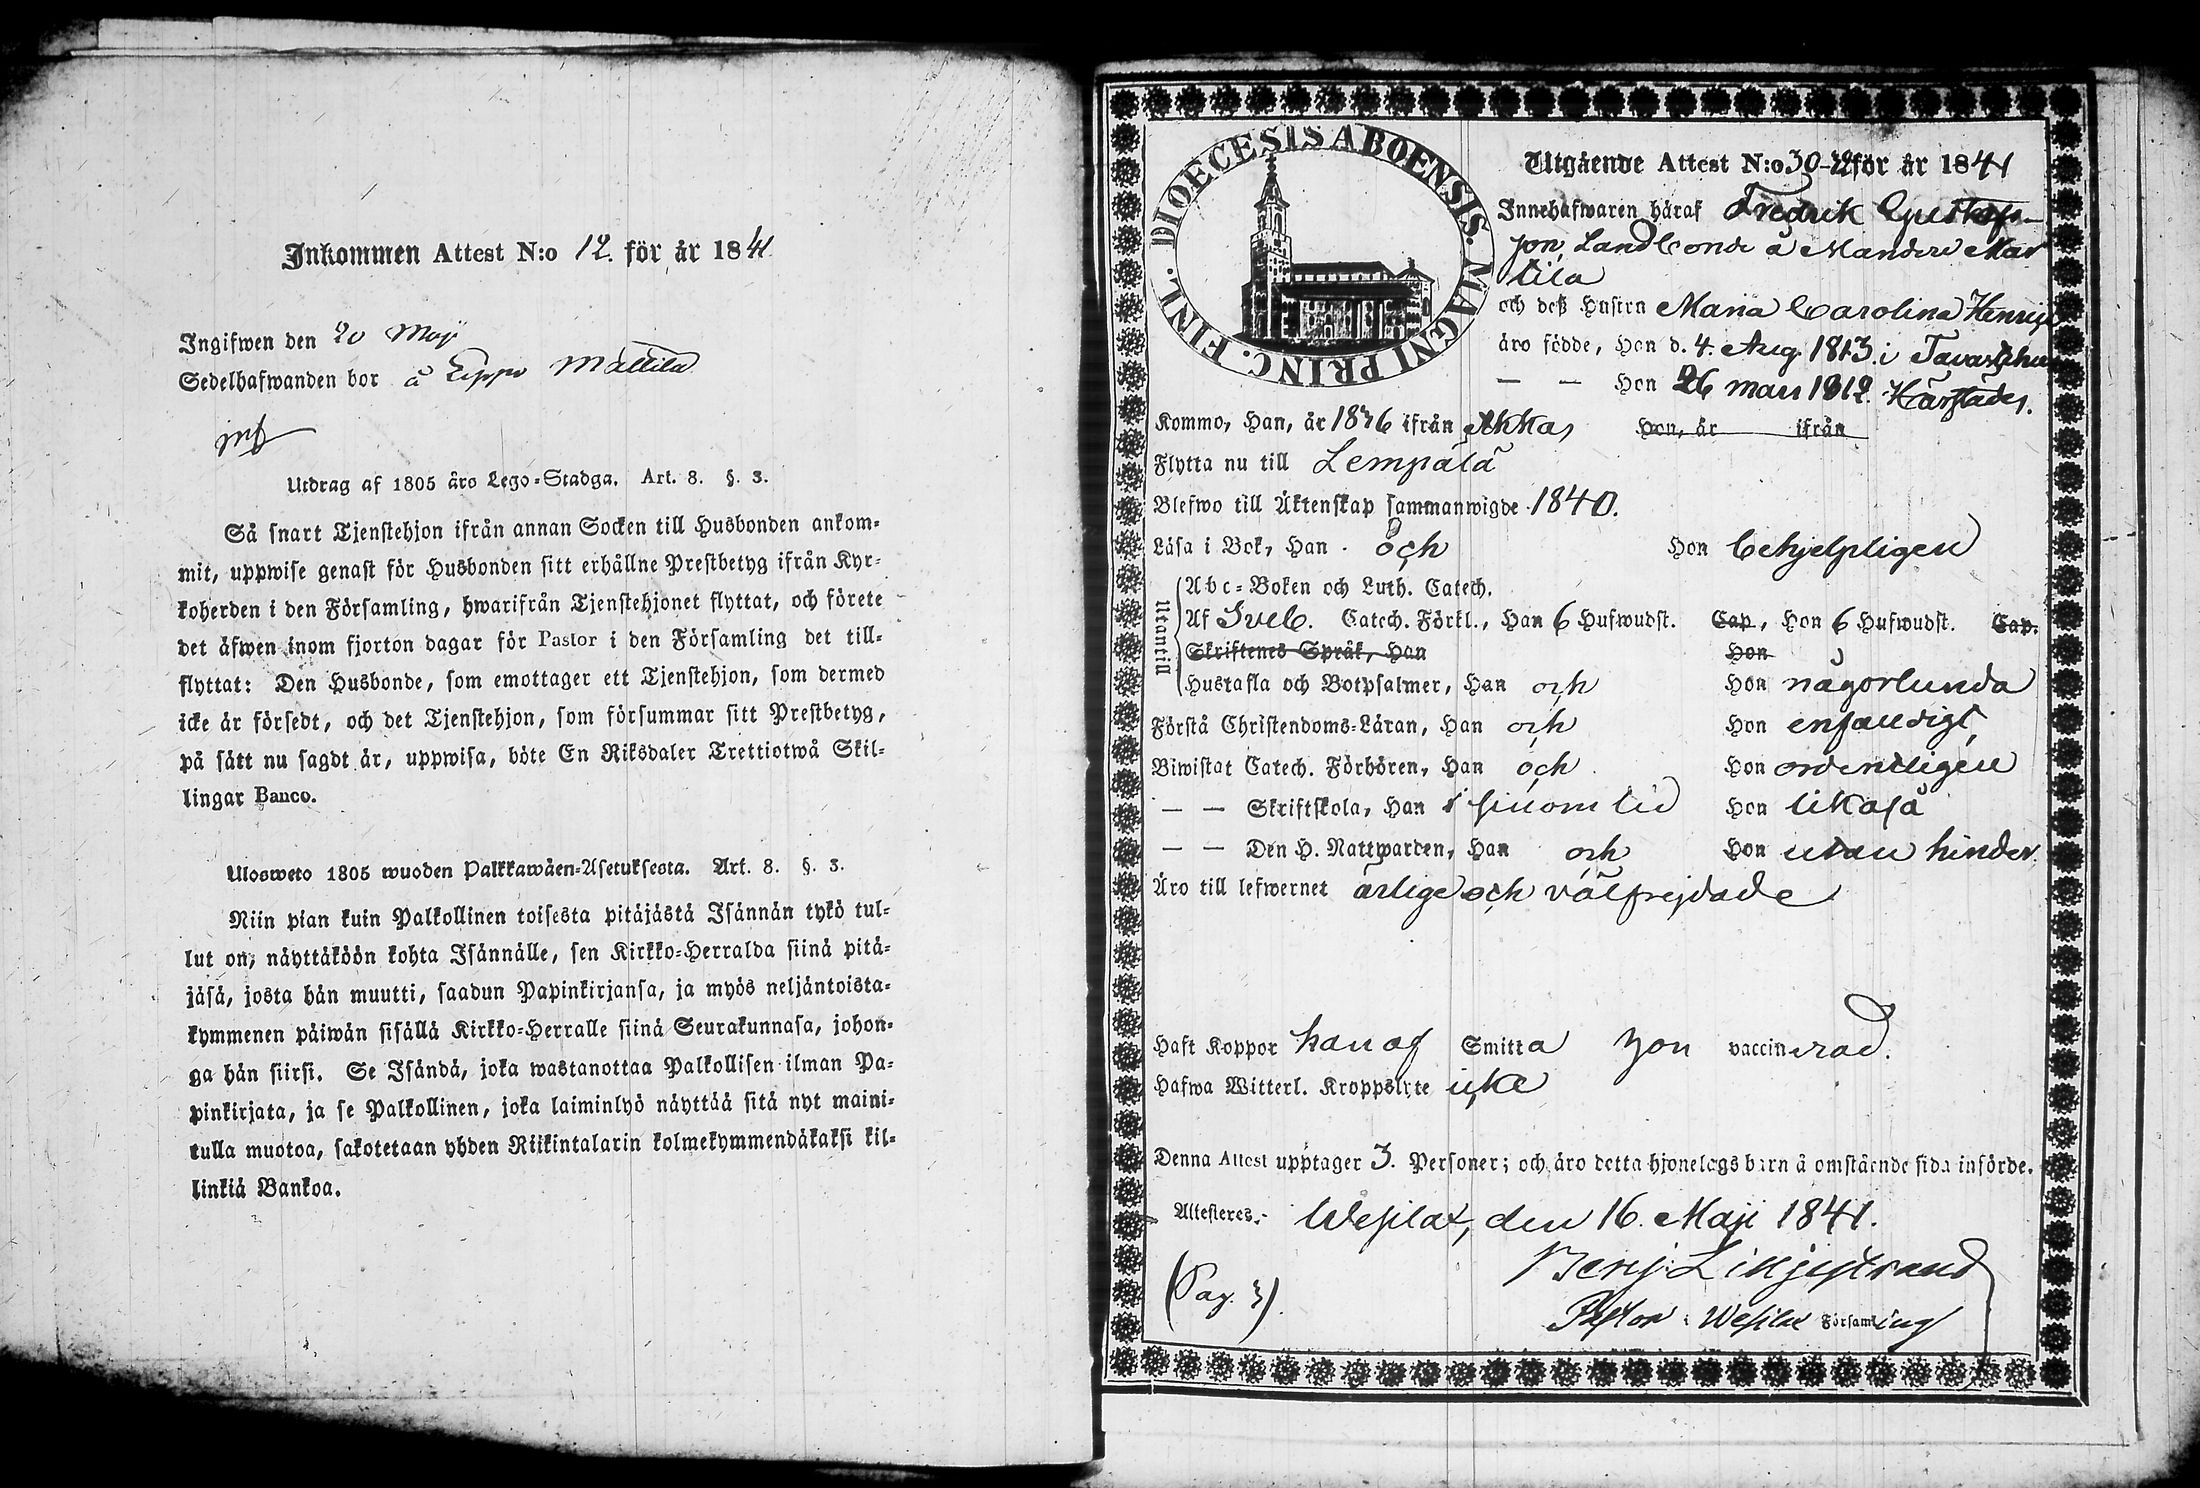 Inkommen Attest N:o 12. för år 1841
Ingifwen den 20 Maji
Sedelhafwanden bor å Mattila
Utdrag af 1805 års Lego-Stadga. Art. 8. §. 3.
Så snart Tjenstehjon ifrån annan Socken till Husbonden ankom-
mit, uppwise genast för Husbonden sitt erhållne Prestbetyg ifrån Kyr-
koherden i den Församling, hwarifrån Tjenstehjonet flyttat, och förete
det äfwen inom fjorton dagar för Pastor i den Församling det till-
flyttat: Den Husbonde, som emottager ett Tjenstehjon, som dermed
icke är försedt, och det Tjenstehjon, som försummar sitt Prestbetyg,
på sätt nu sagdt är, uppwisa, böte En Riksdaler Trettiotwå Skil-
lingar Banco.
Ulosweto 1805 wuoden Palkkawäen-Asetuksesta. Art. 8. §. 3.
Niin pian kuin Palkollinen toisesta pitäjästä Isännän tykö tul-
lut on, näyttäköön kohta Isännälle, sen Kirkko-Herralda siinä pitä-
jäsä, josta hän muutti, saadun Papinkirjansa, ja myös neljäntoista-
kymmenen päiwän sisällä Kirkko-Herralle siinä Seurakunnasa, johon-
ga hän siirsi. Se Isändä, joka wastanottaa Palkollisen ilman Pa-
pinkirjata, ja se Palkollinen, joka laiminlyö näyttää sitä nyt maini-
tulla muotoa, sakotetaan yhden Riikintalarin kolmekymmendäkaksi kil-
linkiä Bankoa.
DIOECESIS ABOENSIS. MAGNI PRINC. FINL.
Utgående Attest N:o 30-32 för år 1841
Innehafwaren häraf Fredrik Gustafs-
son, Landbonde å Mar
tila
och deß Hustru Maria Carolina Henriks
äro födde, Han d. 4. Aug. 1813. i Tavastehus
— — Hon 26 mars 1812.
Kommo, Han, år 1836 ifrån Akkas Hon, år ifrån
Flytta nu till Lempälä
Blefwo till Äktenskap sammanwigde 1840.
Läsa i Bok, Han och Hon behjelpligen
Utantill
Abc-Boken och Luth. Catech.
Af Sveb. Catech. Förkl., Han 6 Hufwudst. Cap., Hon 6 Hufwudst. Cap.
Skriftenes Språk, Han Hon
Hustafla och Botpsalmer, Han och Hon någorlunda
Förstå Christendoms-Läran, Han och Hon enfaldigt
Biwistat Catech. Förhören, Han och Hon ordentligen
— — Skriftskola, Han i sinom tid Hon likaså
— — Den H. Nattwarden, Han och Hon utan hinder.
Äro till lefwernet ärlige och välfrejdade
Haft Koppor han af Smitta hon vaccinerad.
Hafwa Witterl. Kroppslyte icke
Denna Attest upptager 3. Personer; och äro detta hjonelags barn å omstående sida införde.
Attesteres. Wesilax, den 16. Maji 1841.
Benj. Liljestrand
(Pag. 3).
Pastor i Wesilax Församling